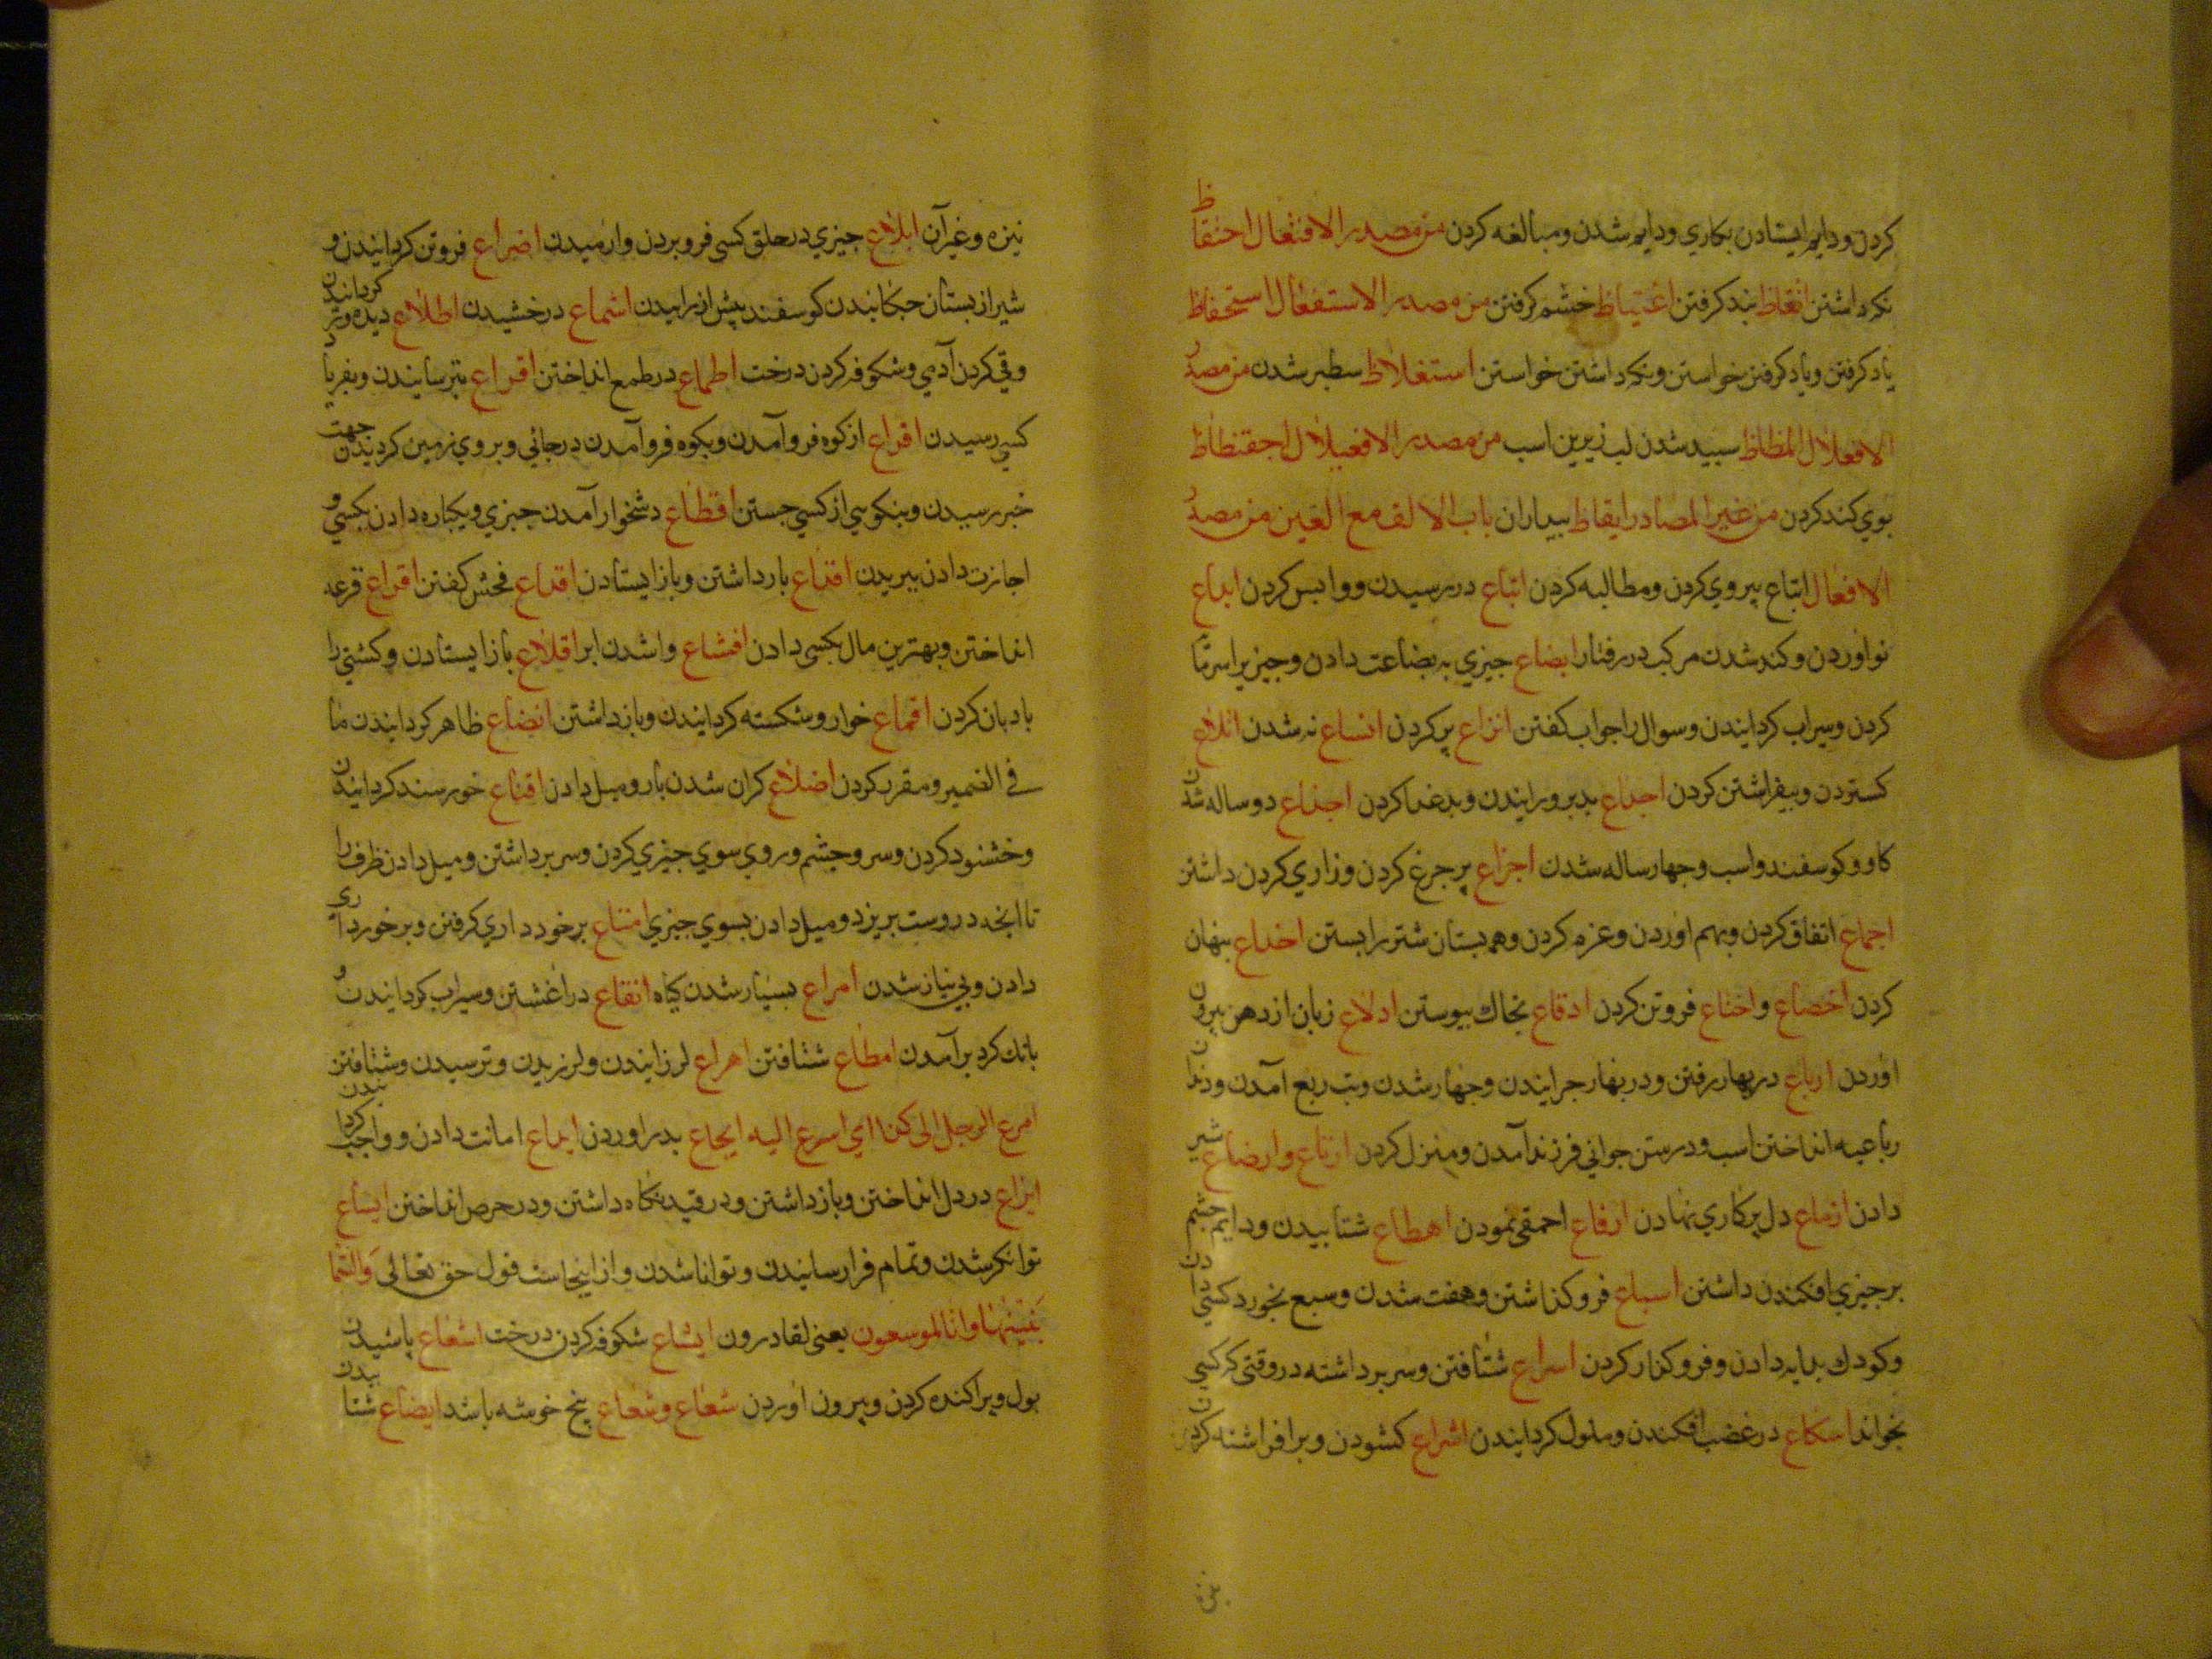 کردن ودایم ایستادن بکاری ودایم شدن ومبالغه کردن من مصدر الافتعال احتفاظ
نکه داشتن اتعاظ بند کرفتن اغتیاظ خشم کرفتن من مصدر الاستفعال استحفاظ
یاد کرفتن ویاد کرفتن خواستن ونکه داشتن خواستن استغلاظ سطبر شدن من مصدر
الافعلال المظاظ سبید شدن لب زیرین اسب من مصدر الافعیلال اجفنظاظ
بوی کند کردن من غیر المصادر ایقاظ بیداران باب الالف مع العین من مصدر
الافعال اتباع پیروی کردن ومطالبه کردن اتباع در رسیدن ووابس کردن ابداع
نو اوردن وکند شدن مرکب در رفتار ابضاع جیزی به بضاعت دادن وجیزیرا سرما
کردن وسیراب کردایندن وسوال را جواب کفتن اتراع پر کردن اتساع نه شدن اتلاع
کستردن وبیفراشتن کردن اجداع بدپرورایندن وبدغدا کردن اجذاع دو ساله شدن
کاو وکوسفند واسب وجهار ساله شدن اجزاع پر جرغ کردن وزاری کردن داشتن
اجماع اتفاق کردن وبهم اوردن وعزم کردن وهمه بستان شتر را بستن اخداع بنهان
کردن اخضاع واخناع فروتن کردن ادقاع بخاك بیوستن ادلاع زبان از دهن بیرون
اوردن ارباع در بهار رفتن ودر بهار جرایندن وجهار شدن وتب ربع آمدن ودندان
رباعیه انداختن اسب ودر سن جوانی فرزند آمدن ومنزل کردن ارتاع وارضاع شیر
دادن ازماع دل بر کاری نهادن ارقاع احمقی نمودن اهطاع شتابیدن ودایم جشم
بر جیزی افکندن داشتن اسباع فرو کذاشتن وهفت شدن وسبع بخورد کسی دادن
وکودك بدایه دادن وفرو کذار کردن اسراع شتافتن وسر برداشته در وقتی که کسی
بخواند اسکاع در غضب افکندن وملول کردایندن اشراع کشودن وبر افراشته کردن
نیزه
نیزه وغیر آن ابلاع جیزی در حلق کسی فرو بردن وارمیدن اضراع فروتن کردایندن و
شیر از بستان جکانیدن کوسفند پیش از زاییدن اشماع درخشیدن اطلاع دیده ور کردانیدن
وقی کردن آدمی وشکوفه کردن درخت اطماع در طمع انداختن افزاع بترسایندن وبفریاد
کسی رسیدن افراع از کوه فرو آمدن وبکوه فرو آمدن در جائی وبروی زمین کردیدن جهت
خبر رسیدن وبنکویی از کسی جستن اقطاع دشخوار آمدن جیزی ویکباره دادن بکسی و
اجازت دادن ببریدن اقداع بازداشتن وباز ایستادن اقذاع فحش کفتن اقراع قرعه
انداختن وبهترین مال بکسی دادن اقشاع واشدن ابر اقلاع باز ایستادن وکشتی را
بادبان کردن اقماع خوار وشکسته کردایندن وبازداشتن انضاع ظاهر کردایندن ما
فی الضمیر ومقرب کردن اضلاع کران شدن بار ومیل دادن اقناع خورسند کردانیدن
وخشنود کردن وسر وجشم وروی سوی جیزی کردن وسر برداشتن ومیل دادن ظرف را
تا انجه دروست بریزد ومیل دادن بسوی جیزی امتاع برخورداری کرفتن وبرخورداری
دادن وبی نیاز شدن امراع بسیار شدن کیاه انقاع در اغشتن وسیراب کردایندن و
بانك کرد برآمدن امطاع شتافتن اهراع لرزایندن ولرزیدن وترسیدن وشتافتن
امرع الرجل الی کذا ای اسرع الیه ایجاع بدرد اوردن ایداع امانت دادن وواجب کردایندن
ایزاع در دل انداختن وبازداشتن ودر قید نکاه داشتن ودر حرص انداختن ایساع
توانکر شدن وتمام فرارسانیدن وتوانا شدن وازاینجاست قول حق تعالی والسما
بنینها وانا لموسعون یعنی لقادرون ایشاع شکوفه کردن درخت اشعاع پاشیدن
بول وپراکنده کردن وبیرون اوردن شعاع وشعاع یخ خوشه باشد ایضاع شتابیدن